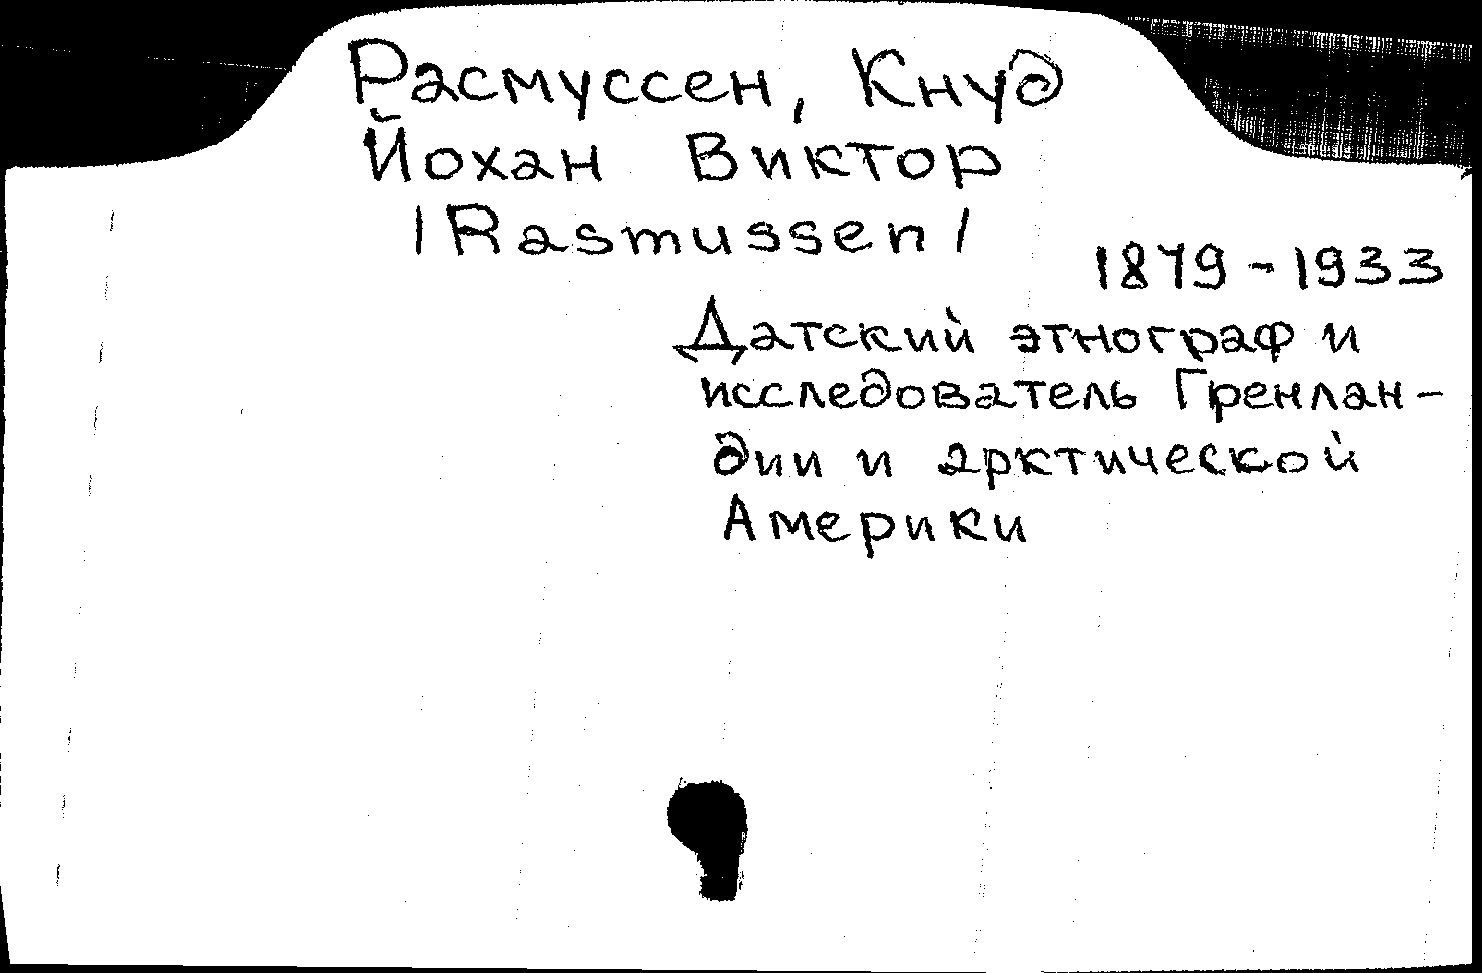 Расмуссен, Кнуд
Йохан Виктор
/Rasmussen/
1879-1933
Датский этнограф и
исследователь Гренлан-
дии и арктической
Америки